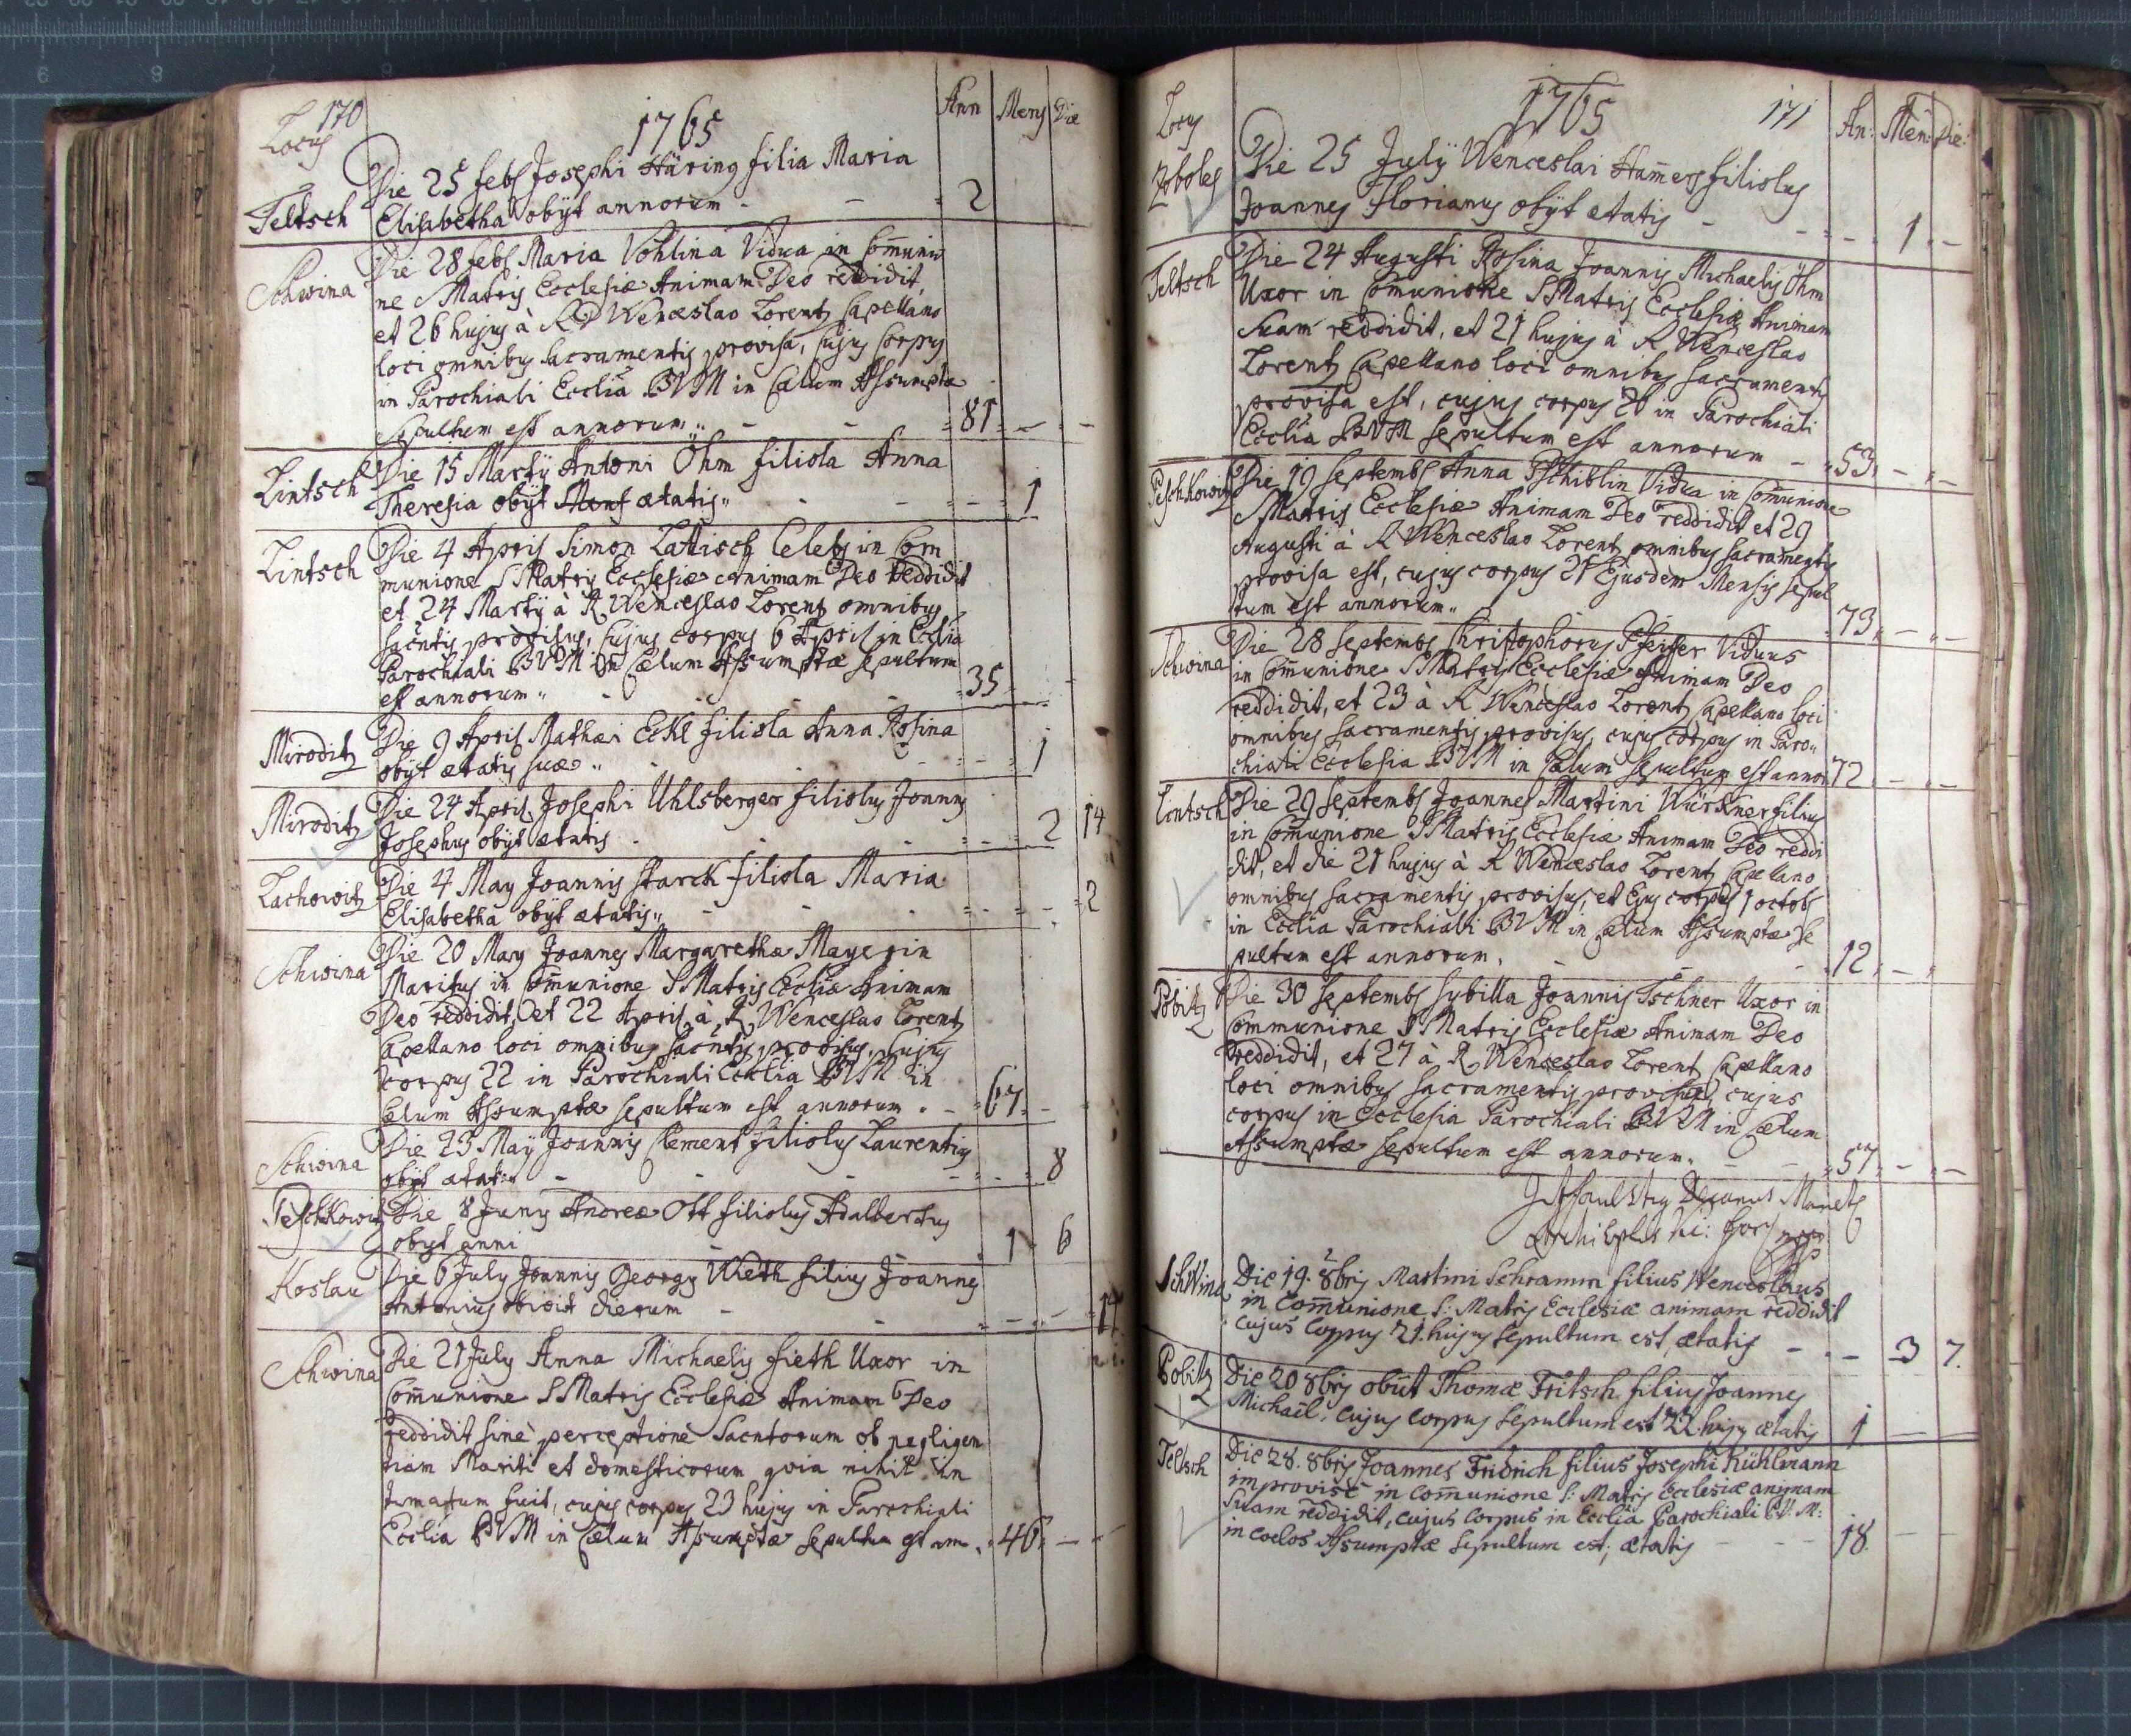 170
Locus
1765
Ann Mens Diæ
Teltsch
Die 25 febr Josephi Häring filia Maria
Elisabetha obÿt annorum - - 2
Schwina
Die 28 febr Maria Vohlina Vidua in Com̄unio
ne SMatris Ecclesiæ Animam Deo reddidit,
et 26 hujus à RD Wenceslao Lorentz Capellano
loci omnibus sacramentis provisa, cujus corpus
in Parochiali Ecclia BVM in Cælum Assumptæ
Sepultum est annorum - - 81 - -
Lintsch
Die 15 Martÿ Antoni Öhm filiola Anna
Theresia obÿt Mens ætatis - - 1
Lintsch
Die 4 Apris Simon Lattisch Celebs in Com
munione SMatris Ecclesiæ animam Deo reddidit
et 24 Martÿ à R Wenceslao Lorentz omnibus
sacntis provisus, cujus corpus 6 Apris in Ecclia
Parochiali BVM in Cælum Assumptæ sepultum
est annorum - - 35 -
Miroditz
Die 9 Apris Mathæi Eckl filiola Anna Rosina
obÿt ætatis suæ - - 1
Miroditz
Die 24 Apris Josephi Uhlsberger filiolus Joannes
Josephus obÿt ætatis - - 2 14
Lachowitz
Die 4 May Joannis Starck filiola Maria
Elisabetha obÿt ætatis - - 2
Schwina
Die 20 May Joannes Margarethæ Mayerin
Maritus in Com̄unione SMatris Eccliæ Animam
Deo reddidit, et 22 Apris à R Wenceslao Lorentz
Capellano loci omnibus sacntis provisus, Cujus
corpus 22 in Parochiali Ecclia BVM in
cælum Assumptæ sepultum est annorum - 67 -
Schwina
Die 23 Maÿ Joannis Clement filiolus Laurentius
obÿt ætat: - - 8
Peschkowitz
Die 8 Juny Andreæ Ott filiolus Adalbertus
obÿt anni - 1 6
Koslau
Die 6 July Joannis Georgy Vieth filius Joannes
Antonius obiit dierum - - 14
Schwina
Die 21 July Anna Michaelis fieth Uxor in
Com̄unione SMatris Ecclesiæ Animam Deo
reddidit sine perceptione Sacntorum ob negligen
tiam Mariti et domesticorum quia nihil in
timatum fuit, cujus corpus 23 hujus in Parochiali
Ecclia BVM in Cælum Assumptæ sepultum est ann. 46 - -
Locus
1765
171
An: Men: Die:
Zoboles
Die 25 Julÿ Wenceslai Ham̄ers filiolus
Joannes Florianus obÿt ætatis - - 1 -
Teltsch
Die 24 Augusti Rosina Joannis Michaelis Öhm
Uxor in Com̄unione SMatris Ecclesiæ Animam
suam reddidit, et 21 hujus à R Wenceslao
Lorentz Capellano loci omnibus sacramentis
provisa est, cujus corpus 26 in Parochiali
Ecclia BVM sepultum est annorum - 53 - -
Peschkowitz
Die 19 Septembs Anna Pschiblin Vidua in Com̄unione
SMatris Ecclesiæ Animam Deo reddidit et 29
Augusti à R Wenceslao Lorentz omnibus sacramentis
provisa est, cujus corpus 21 Ejusdem Mensis sepul
tum est annorum - 73 - -
Schwina
Die 28 Septembs Christophorus Pfeifer Viduus
in Com̄unione SMatris Ecclesiæ Animam Deo
reddidit, et 23 à R Wenceslao Lorentz Capellano loci
omnibus sacramentis provisus, cujus corpus in Paro
chiali Ecclesia BVM in Cælum sepultum est annor 72 - -
Lintsch
Die 29 Septembs Joannes Martini Würkner filius
in Com̄unione SMatris Ecclesiæ Animam Deo reddi
dit, et die 21 hujus à R Wenceslao Lorentz Capellano
omnibus sacramentis provisus, et Ejus corpus 1 octobs
in Ecclia Parochiali BVM in Cælum Assumptæ Se
pultum est annorum. - 12 -
Pobitz
Die 30 Septembs Sybilla Joannis Tschner Uxor in
Communione SMatris Ecclesiæ Animam Deo
reddidit, et 27 à R Wenceslao Lorentz Capellano
loci omnibus sacramentis provisa, cujus
corpus in Ecclesia Parochiali BVM in Cælum
Assumptæ sepultum est annorum. - 57 - -
Decanus
Schwina
Die 19. 8bris Martini Schramm filius Wenceslaus
in Com̄unione S: Matris Ecclesiæ animam reddidit
cujus corpus 21. hujus sepultum est, ætatis - - 3 7.
Pobitz
Die 20 8bris obiit Thomæ Fritsch filius Joannes
Michaël, cujus corpus sepultum est 22. hujus ætatis 1 -
Teltsch
Die 28. 8bris Joannes Fridrich filius Josephi Kühlmann
improvisè in com̄unione S: Matris Ecclesiæ animam
suam reddidit, cujus corpus in Ecclia Parochiali B.V.M:
in coelos Assumptæ sepultum est; ætatis - - 18 -